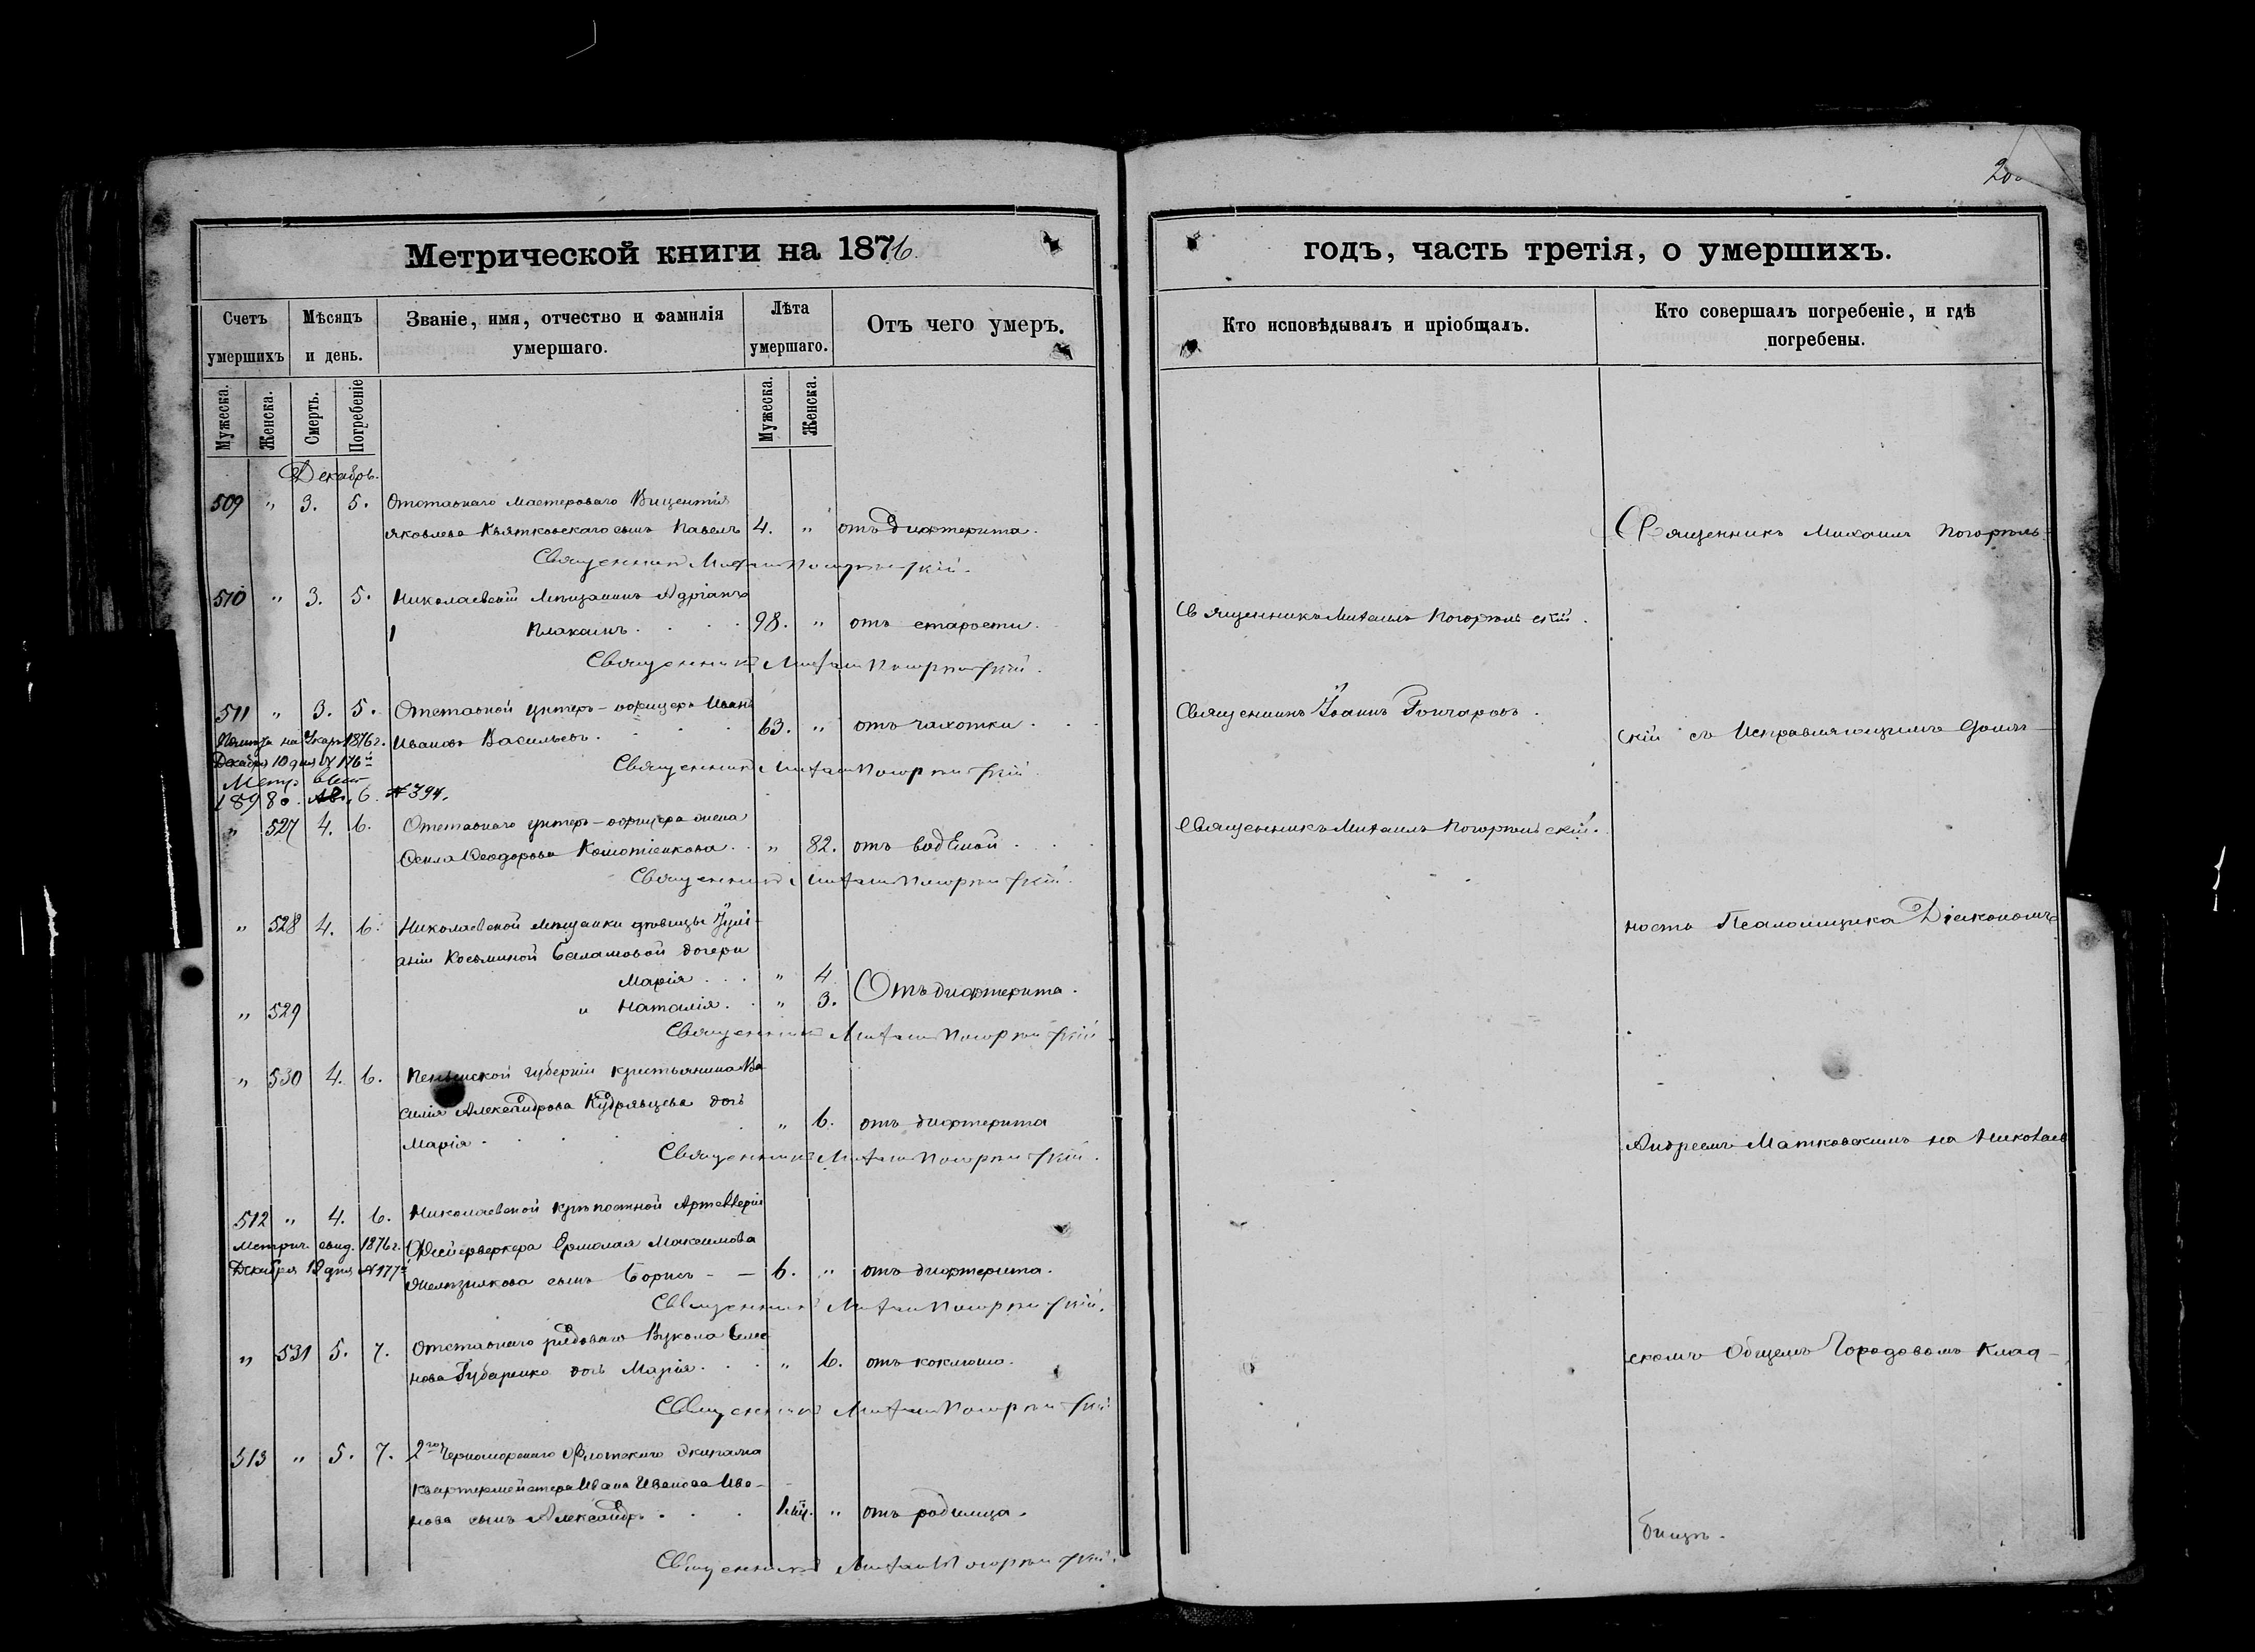 Метрической книги на 1876
Счетъ умершихъ
Мѣсяцъ и день.
Званіе, имя, отчество и фамилія умершаго.
Лѣта умершаго.
Отъ чего умеръ.
Мужеска.
Женска.
Смерть.
Погребеніе
Мужеска.
Женска.
Декабрь.
509 " 3. 5. Отставнаго мастероваго Викентія
Яковлева Квятковскаго сынъ Павелъ 4. " отъ дифтерита.
Священникъ Михаилъ Погорѣльскій.
510 " 3. 5. Николаевскій Мѣщанинъ Адріанъ
Плаксинъ. 98. " отъ старости.
Священникъ Михаилъ Погорѣльскій.
511 " 3. 5. Отставной унтеръ-офицеръ Иванъ
Ивановъ Васильевъ. 63. " отъ чахотки
1876 г.
Декабря 10 дня № 176й
Священникъ Михаилъ Погорѣльскій.
Метр.
6. № 394.
" 527 4. 6. Отставнаго унтеръ-офицера жена
Ѳеодорова 82. отъ водяной
Священникъ Михаилъ Погорѣльскій.
" 528 4. 6. Николаевской Мѣщанки дѣвицы Іулі-
аніи Косьминой Саламовой дочери
Марія " 4
" 529 и Наталія " 3. Отъ дифтерита.
Священникъ Михаилъ Погорѣльскій
" 530 4. 6. Пензенской губерніи крестьянина Ва
силія Александрова Кудрявцева дочь
Марія " 6. отъ дифтерита
Священникъ Михаилъ Погорѣльскій.
512 " 4. 6. Николаевской крѣпостной Артиллеріи
Метрич. свид. 1876 г. Фейерверкера Ермолая Максимова
Декабря дня № 177й
Желѣзнякова сынъ Борисъ - - 6. " отъ дифтерита.
Священникъ Михаилъ Погорѣльскій.
" 531 5. 7. Отставнаго рядоваго Вукола Семе
нова Губаренко дочь Марія 6. отъ коклюша.
Священникъ Михаилъ Погорѣльскій
513 " 5. 7. 2го Черноморскаго Флотскаго экипажа
квартермейстера Ивана Иванова Ива-
нова сынъ Александръ " отъ родимца.
Священникъ Михаилъ Погорѣльскій.
годъ, часть третія, о умершихъ.
Кто исповѣдывалъ и пріобщалъ.
Кто совершалъ погребеніе, и гдѣ погребены.
Священникъ Михаилъ Погорѣль-
Священникъ Михаилъ Погорѣльскій.
Священникъ Іоаннъ Гончаровъ.
скій съ Исправляющимъ долж-
Священникъ Михаилъ Погорѣльскій.
ность Псаломщика Діакономъ
Андреемъ Матковскимъ на Николаев
скомъ Общемъ Городовомъ Клад-
бищѣ.